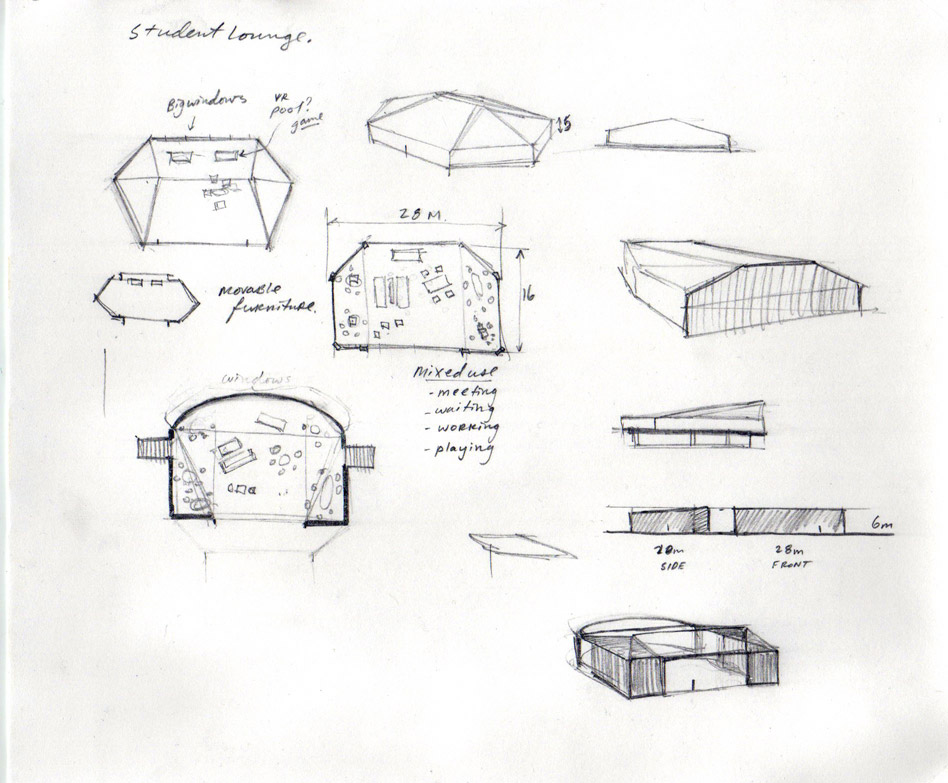 Student Lounge.
Big windows
VR
pool?
game
15
28 M.
16
movable
furniture.
Mixed use
- meeting
- waiting
- working
- playing
windows
6m
28m
SIDE
FRONT